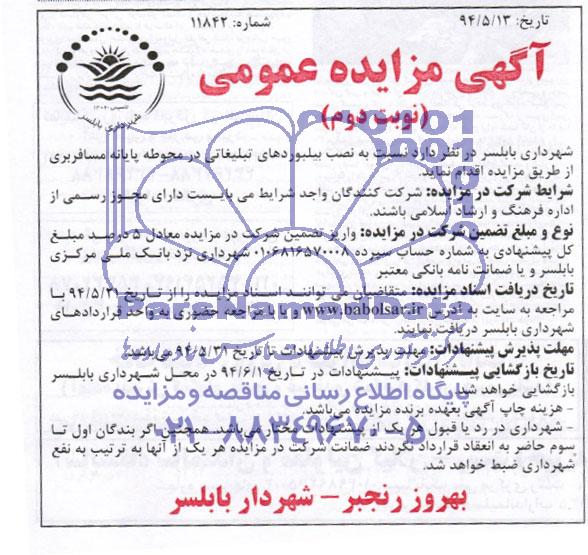 تاریخ: ۹۴/۵/۱۳
شماره: ۱۱۸۴۲
آگهی مزایده عمومی
(نوبت دوم)
تاسیس ۱۳۰۶
شهرداری بابلسر
شهرداری بابلسر در نظر دارد نسبت به نصب بیلبوردهای تبلیغاتی در محوطه پایانه مسافربری
از طریق مزایده اقدام نماید.
شرایط شرکت در مزایده: شرکت کنندگان واجد شرایط می بایست دارای مجوز رسمی از
اداره فرهنگ و ارشاد اسلامی باشند.
نوع و مبلغ تضمین شرکت در مزایده: واریز تضمین شرکت در مزایده معادل ۵ درصد مبلغ
کل پیشنهادی به شماره حساب سپرده ۰۱۰۶۸۱۶۵۷۰۰۰۸ شهرداری نزد بانک ملی مرکزی
بابلسر و یا ضمانت نامه بانکی معتبر
تاریخ دریافت اسناد مزایده: متقاضیان می توانند اسناد مزایده را از تاریخ ۹۴/۵/۲۱ با
مراجعه به سایت به آدرس www.babolsar.ir و یا با مراجعه حضوری به واحد قراردادهای
شهرداری بابلسر دریافت نمایند.
مهلت پذیرش پیشنهادات: مهلت پذیرش پیشنهادات تا تاریخ ۹۴/۵/۳۱ می باشد.
تاریخ بازگشایی پیشنهادات: پیشنهادات در تاریخ ۹۴/۶/۱ در محل شهرداری بابلسر
بازگشایی خواهد شد.
- هزینه چاپ آگهی بعهده برنده مزایده می‌باشد.
- شهرداری در رد یا قبول هر یک از پیشنهادات مختار می‌باشد. همچنین اگر برندگان اول تا
سوم حاضر به انعقاد قرارداد نگردند ضمانت شرکت در مزایده هر یک از آنها به ترتیب به نفع
شهرداری ضبط خواهد شد.
بهروز رنجبر – شهردار بابلسر
ParsNamadData
پایگاه اطلاع رسانی مناقصه و مزایده
۰۲۱-۸۸۳۴۹۶۷۰-۵